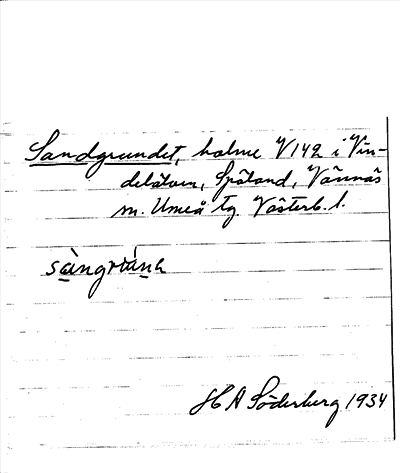 Sandgrundet, holme V142 i Vin-
delälven, Spöland, Vännäs
m. Umeå tg. Västerb. l.
H A Söderberg 1934